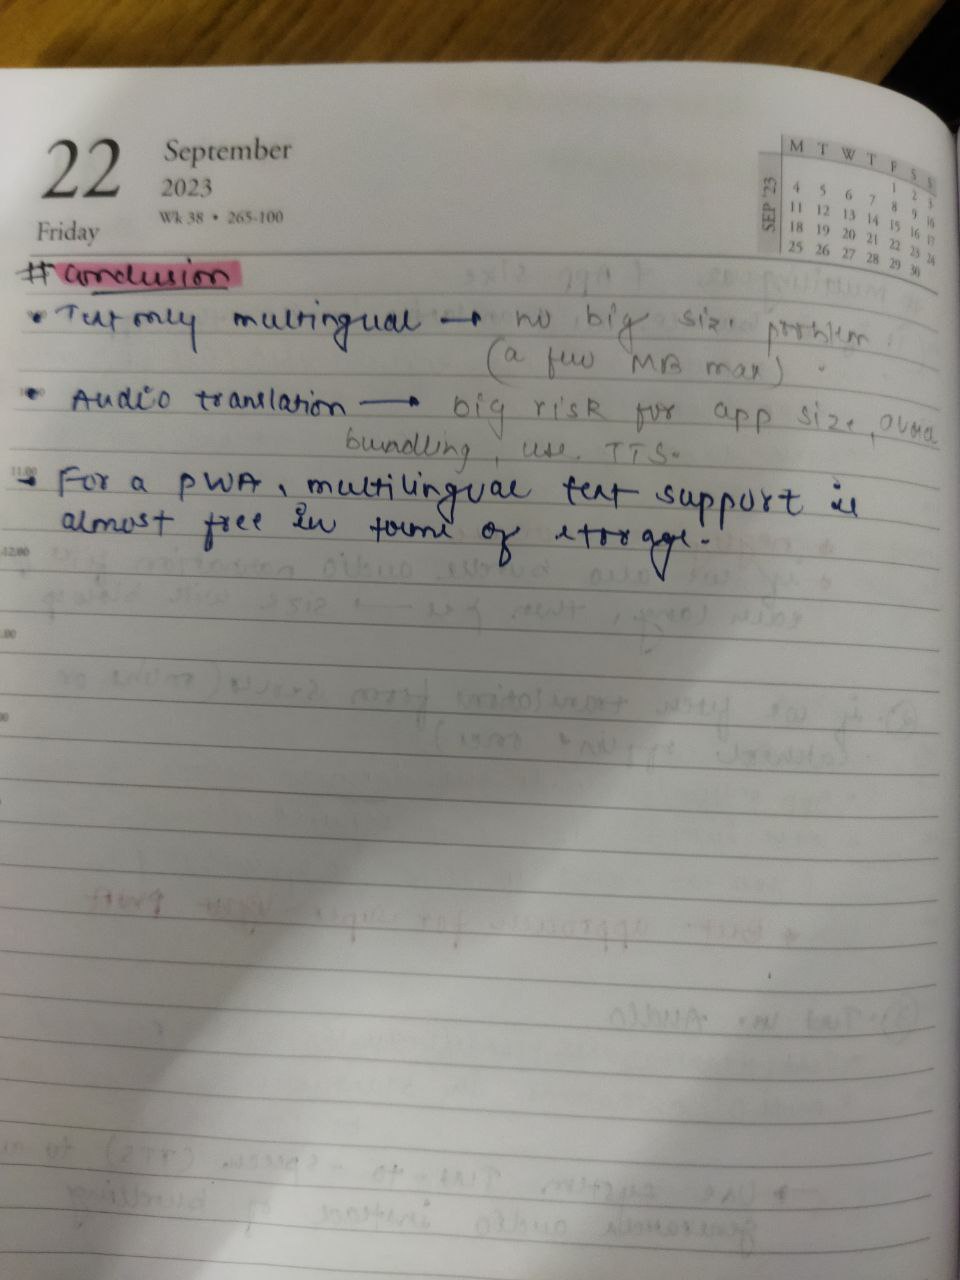 22
September
2023
Wk 38 • 265-100
Friday
SEP '23
M T W T F S S
1 2 3
4 5 6 7 8 9 10
11 12 13 14 15 16 17
18 19 20 21 22 23 24
25 26 27 28 29 30
# Conclusion
• Text only multingual → no big size problem
(a few MB max).
• Audio translation → big risk for app size, avoid
bundling, use TTS.
11.00
→ For a PWA, multilingual text support is
almost free in terms of storage.
12.00
.00